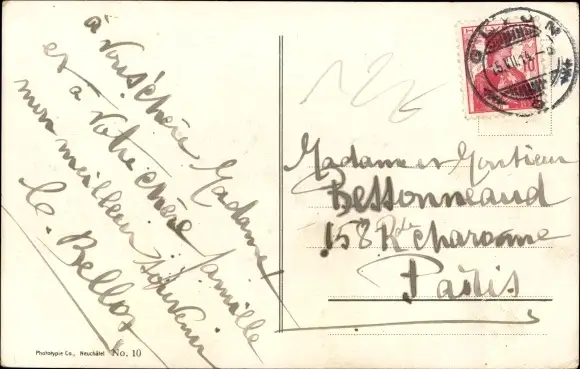 à vous chère Madame
et à votre chère famille
mon meilleur souvenir
C. Bellon
Madame et Monsieur
Bessonneaud
158 R de Charonne
Paris
GLION
10
Phototypie Co., Neuchâtel No. 10